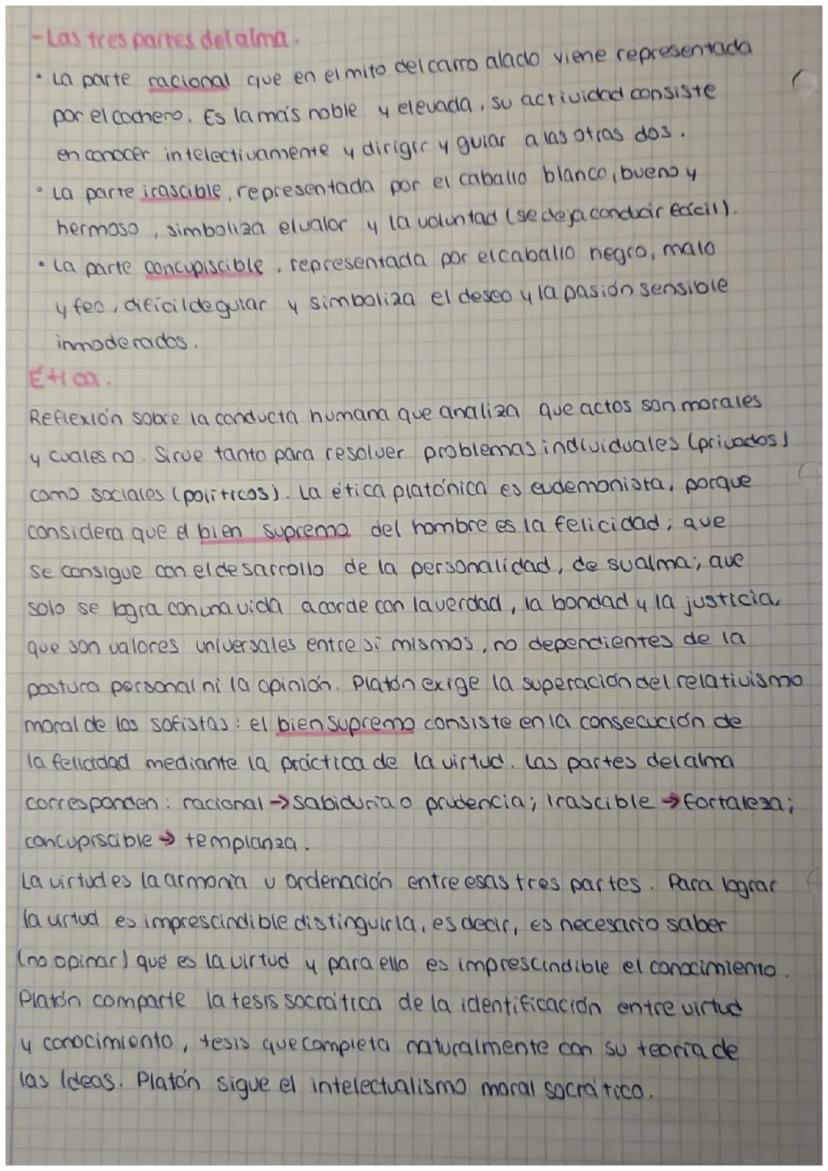 -Las tres partes del alma.
• La parte racional que en el mito del carro alado viene representada
por el cochero. Es la más noble y elevada, su actividad consiste
en conocer intelectivamente y dirigir y guiar a las otras dos.
• La parte irascible, representada por el caballo blanco, bueno y
hermoso, simboliza el valor y la voluntad (se deja conducir fácil).
• La parte concupiscible, representada por el caballo negro, malo
y feo, difícil de guiar y simboliza el deseo y la pasión sensible
inmoderados.
Ética.
Reflexión sobre la conducta humana que analiza que actos son morales
y cuales no. Sirve tanto para resolver problemas individuales (privados)
como sociales (políticos). La ética platónica es eudemonista, porque
considera que el bien supremo del hombre es la felicidad; que
se consigue con el desarrollo de la personalidad, de su alma; que
solo se logra con una vida acorde con la verdad, la bondad y la justicia,
que son valores universales entre sí mismos, no dependientes de la
postura personal ni la opinión. Platón exige la superación del relativismo
moral de los sofistas: el bien supremo consiste en la consecución de
la felicidad mediante la práctica de la virtud. Las partes del alma
corresponden: racional → sabiduría o prudencia; Irascible → fortaleza;
concupiscible → templanza.
La virtud es la armonía u ordenación entre esas tres partes. Para lograr
la urtud es imprescindible distinguirla, es decir, es necesario saber
(no opinar) qué es la virtud y para ello es imprescindible el conocimiento.
Platón comparte la tesis socrática de la identificación entre virtud
y conocimiento, tesis que completa naturalmente con su teoría de
las Ideas. Platón sigue el intelectualismo moral socrático.